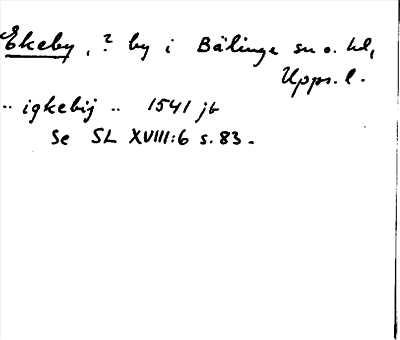 Ekeby, ? by i Bälinge sn o. hd,
Upps. l.
.. igkebij .. 1541 jb
Se SL XVIII:6 s. 83.